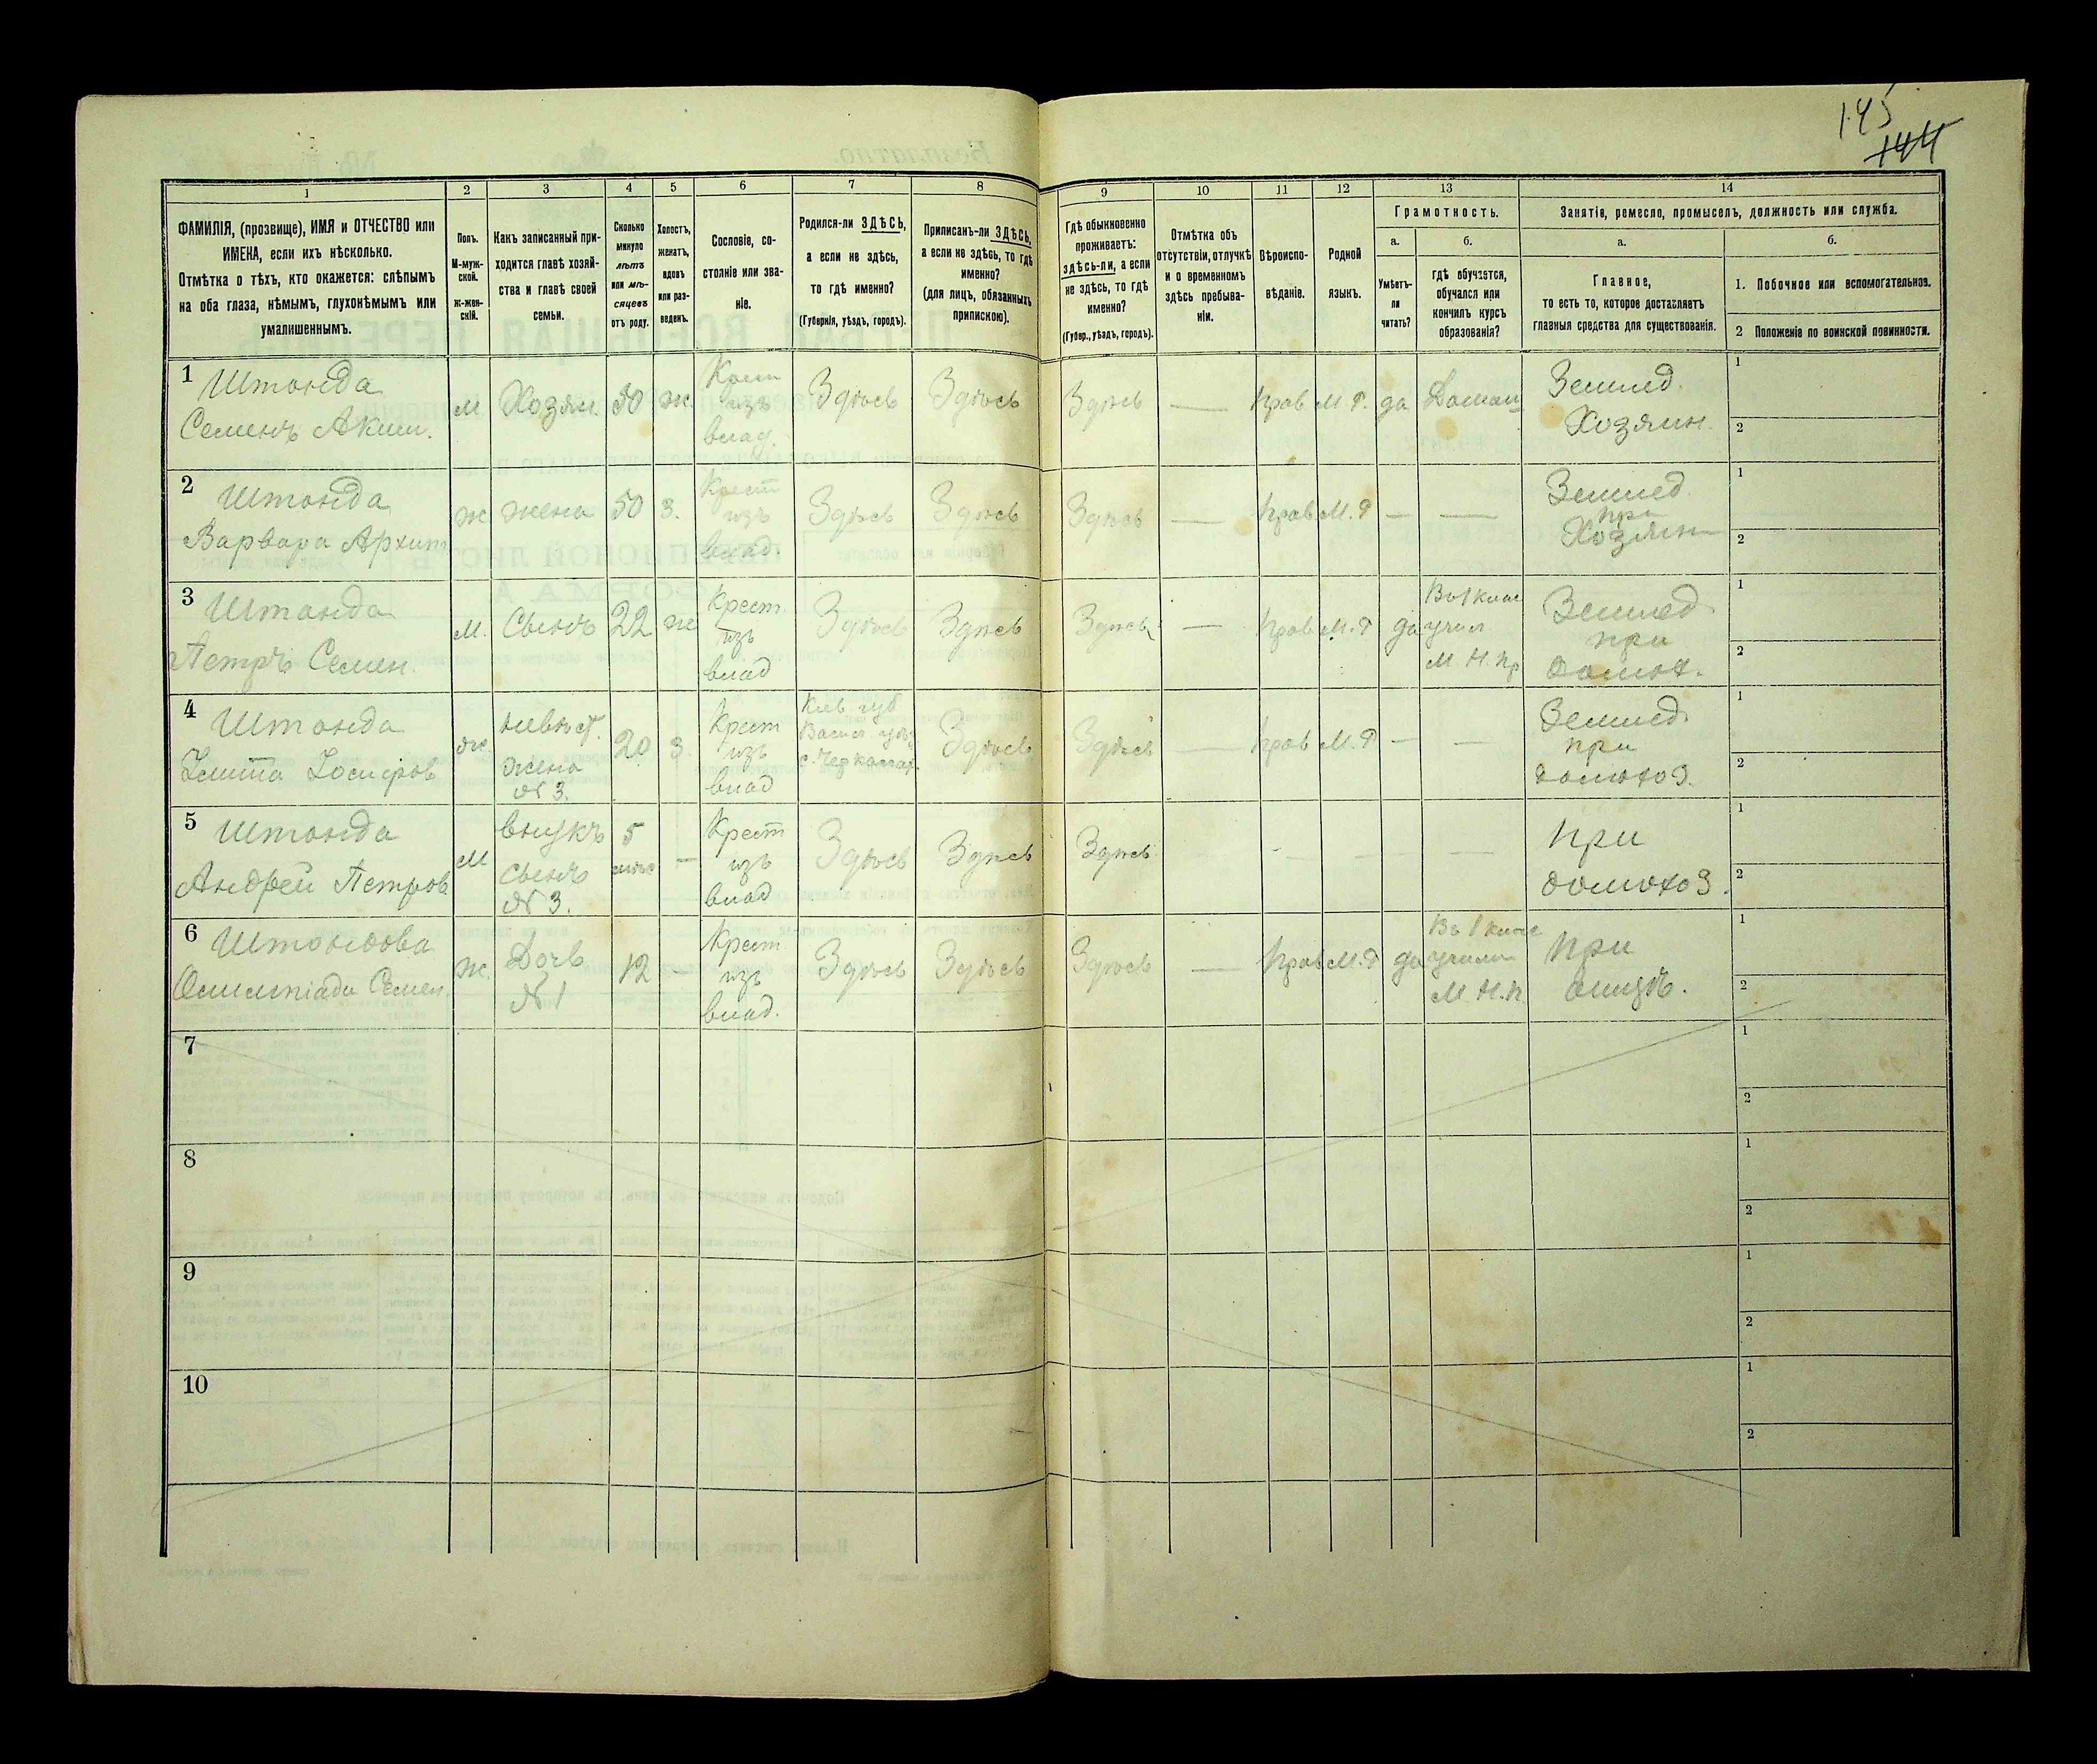 145
144
1
2
3
4
5
6
7
8
9
10
11
12
13
14
ФАМИЛІЯ, (прозвище), ИМЯ и ОТЧЕСТВО или
ИМЕНА, если ихъ нѣсколько.
Отмѣтка о тѣхъ, кто окажется: слѣпымъ
на оба глаза, нѣмымъ, глухонѣмымъ или
умалишеннымъ.
Полъ.
М-муж-
ской.
ж-жен-
скій.
Какъ записанный при-
ходится главѣ хозяй-
ства и главѣ своей
семьи.
Сколько
минуло
лѣтъ
или мѣ-
сяцевъ
отъ роду.
Холостъ,
женатъ,
вдовъ
или раз-
веденъ.
Сословіе, со-
стояніе или зва-
ніе.
Родился-ли ЗДѢСЬ,
а если не здѣсь,
то гдѣ именно?
(Губернія, уѣздъ, городъ).
Приписанъ-ли ЗДѢСЬ,
а если не здѣсь, то гдѣ
именно?
(для лицъ, обязанныхъ
припискою).
Гдѣ обыкновенно
проживаетъ:
здѣсь-ли, а если
не здѣсь, то гдѣ
именно?
(Губер., уѣздъ, городъ).
Отмѣтка объ
отсутствіи, отлучкѣ
и о временномъ
здѣсь пребыва-
ніи.
Вѣроиспо-
вѣданіе.
Родной
языкъ.
Грамотность.
а.
Умѣетъ-
ли
читать?
б.
гдѣ обучается,
обучался или
кончилъ курсъ
образованія?
Занятіе, ремесло, промыселъ, должность или служба.
а.
Главное,
то есть то, которое доставляетъ
главныя средства для существованія.
б.
1. Побочное или вспомогательное.
2 Положеніе по воинской повинности.
1
Штонда
Семенъ Аким.
М.
Хозяи.
50
ж.
изъ
влад.
Здѣсь
Здѣсь
Здѣсь
—
прав
М. Р.
да
Домаш
Землед.
Хозяин.
1
2
2
Штонда
Варвара Архип
ж
жена
50
З.
Крест
изъ
влад.
Здѣсь
Здѣсь
Здѣсь
—
прав
М. Р
—
—
Землед
при
Хозяин
1
2
3
Штонда
Петръ Семен.
М.
Сынъ
22
ж
Крест.
изъ
влад
Здѣсь
Здѣсь
Здѣсь
—
прав
М. Р
да
Въ 1 клас
учил
М. Н. пр
Землед
при
домох.
1
2
4
Штонда
Іосифов
ж.
невѣст.
жена
№ 3.
20
З.
Крест
изъ
влад
Кіев губ
Васил. уѣз
Здѣсь
Здѣсь
—
прав
М. Р
—
—
Землед
при
домохоз.
1
2
5
Штонда
Андрей Петров
М
внукъ
сынъ
№ 3.
5
мѣс
—
Крест
изъ
влад
Здѣсь
Здѣсь
Здѣсь
—
—
—
—
—
при
домохоз.
1
2
6
Штондова
Олимпіада Семен.
Ж.
Дочь
№ 1
12
—
Крест
изъ
влад.
Здѣсь
Здѣсь
Здѣсь
—
прав
М. Р
да
Въ 1 клас
училищ
М. Н. п.
при
отцѣ.
1
2
7
1
2
8
1
2
9
1
2
10
1
2